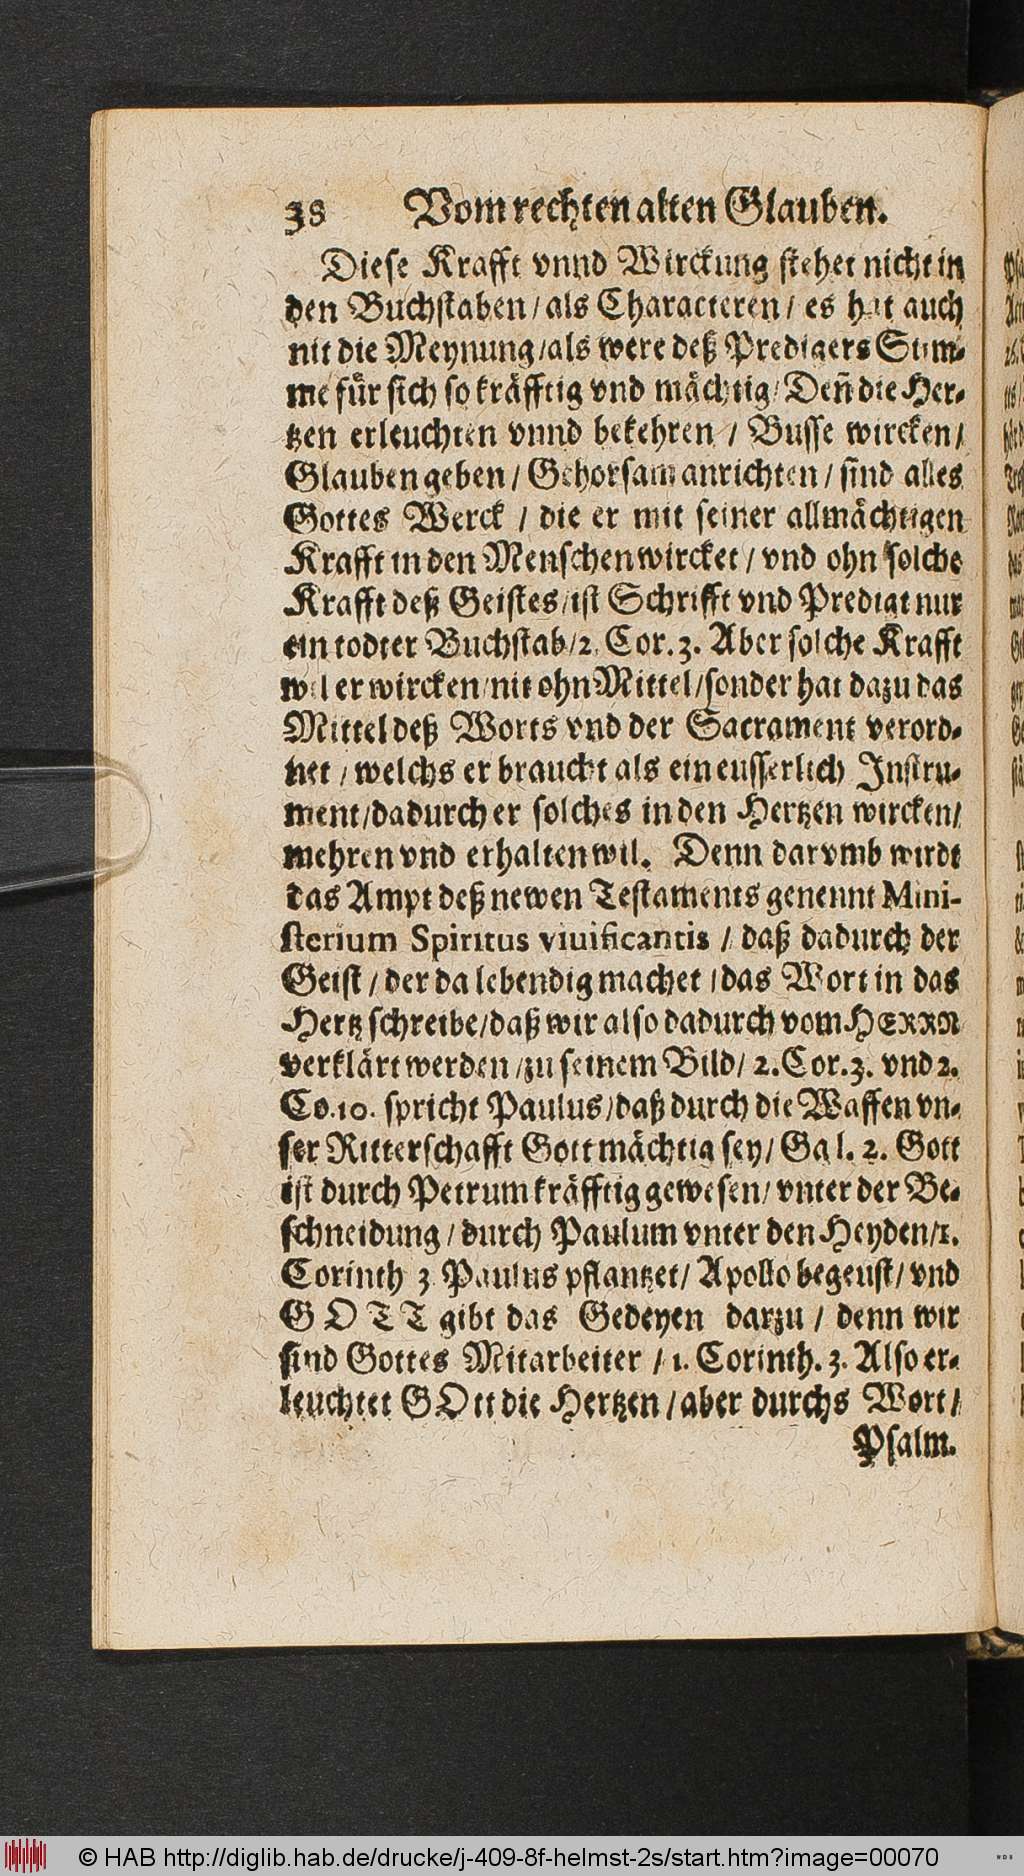 38 Vom rechten alten Glauben.
Diese Krafft vnnd Wirckung stehet nicht in
den Buchstaben / als Characteren / es hat auch
nit die Meynung / als were deß Predigers Stim-
me für sich so kräfftig vnd mächtig / Deñ die Her-
tzen erleuchten vnnd bekehren / Busse wircken /
Glauben geben / Gehorsam anrichten / sind alles
Gottes Werck / die er mit seiner allmächtigen
Krafft in den Menschen wircket / vnd ohn solche
Krafft deß Geistes / ist Schrifft vnd Predigt nur
ein todter Buchstab / 2. Cor. 3. Aber solche Krafft
wil er wircken / nit ohn Mittel / sonder hat dazu das
Mittel deß Worts vnd der Sacrament verord-
net / welchs er braucht als ein eusserlich Instru-
ment / dadurch er solches in den Hertzen wircken /
mehren vnd erhalten wil. Denn darvmb wirdt
das Ampt deß newen Testaments genennt Mini-
sterium Spiritus viuificantis / daß dadurch der
Geist / der da lebendig machet / das Wort in das
Hertz schreibe / daß wir also dadurch vom HERRN
verklärt werden / zu seinem Bild / 2. Cor. 3. vnd 2.
Co. 10. spricht Paulus / daß durch die Waffen vn-
ser Ritterschafft Gott mächtig sey / Gal. 2. Gott
ist durch Petrum kräfftig gewesen / vnter der Be-
schneidung / durch Paulum vnter den Heyden / 1.
Corinth 3 Paulus pflantzet / Apollo begeust / vnd
GOTT gibt das Gedeyen darzu / denn wir
sind Gottes Mitarbeiter / 1. Corinth. 3. Also er-
leuchtet GOtt die Hertzen / aber durchs Wort /
Psalm.
© HAB http://diglib.hab.de/drucke/j-409-8f-helmst-2s/start.htm?image=00070